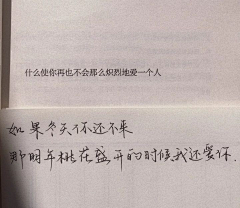 什么使你再也不会那么炽烈地爱一个人
如果冬天你还不来
那明年桃花盛开的时候我还爱你.